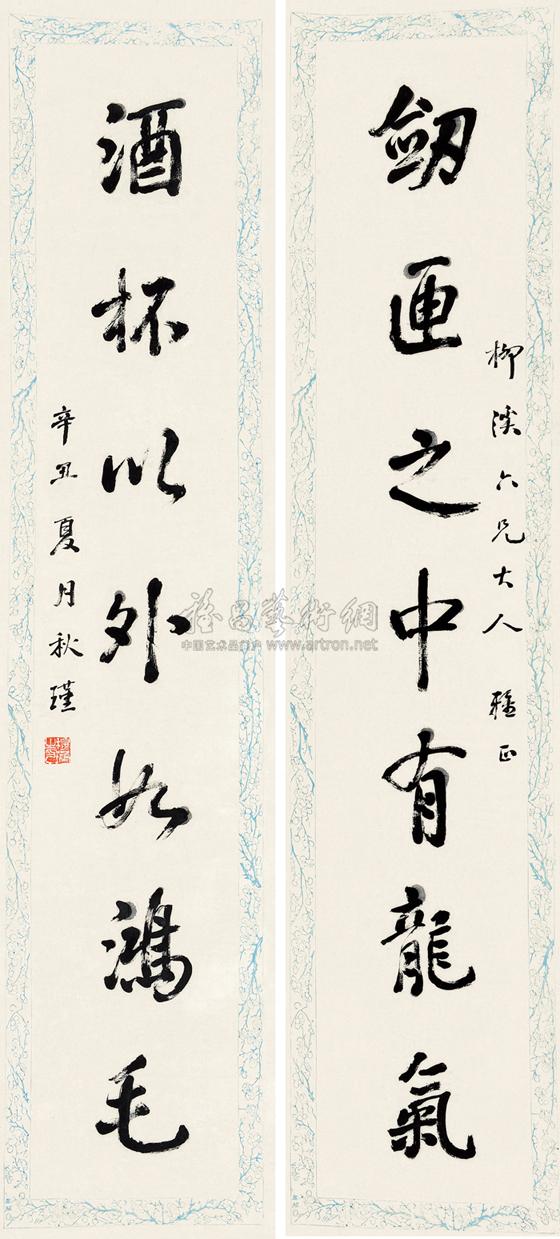 柳溪六兄大人 雅正
劒匣之中有龍氣
酒杯以外如鴻毛
辛丑夏月秋瑾
雅昌藝術網
中国艺术品门户 www.artron.net